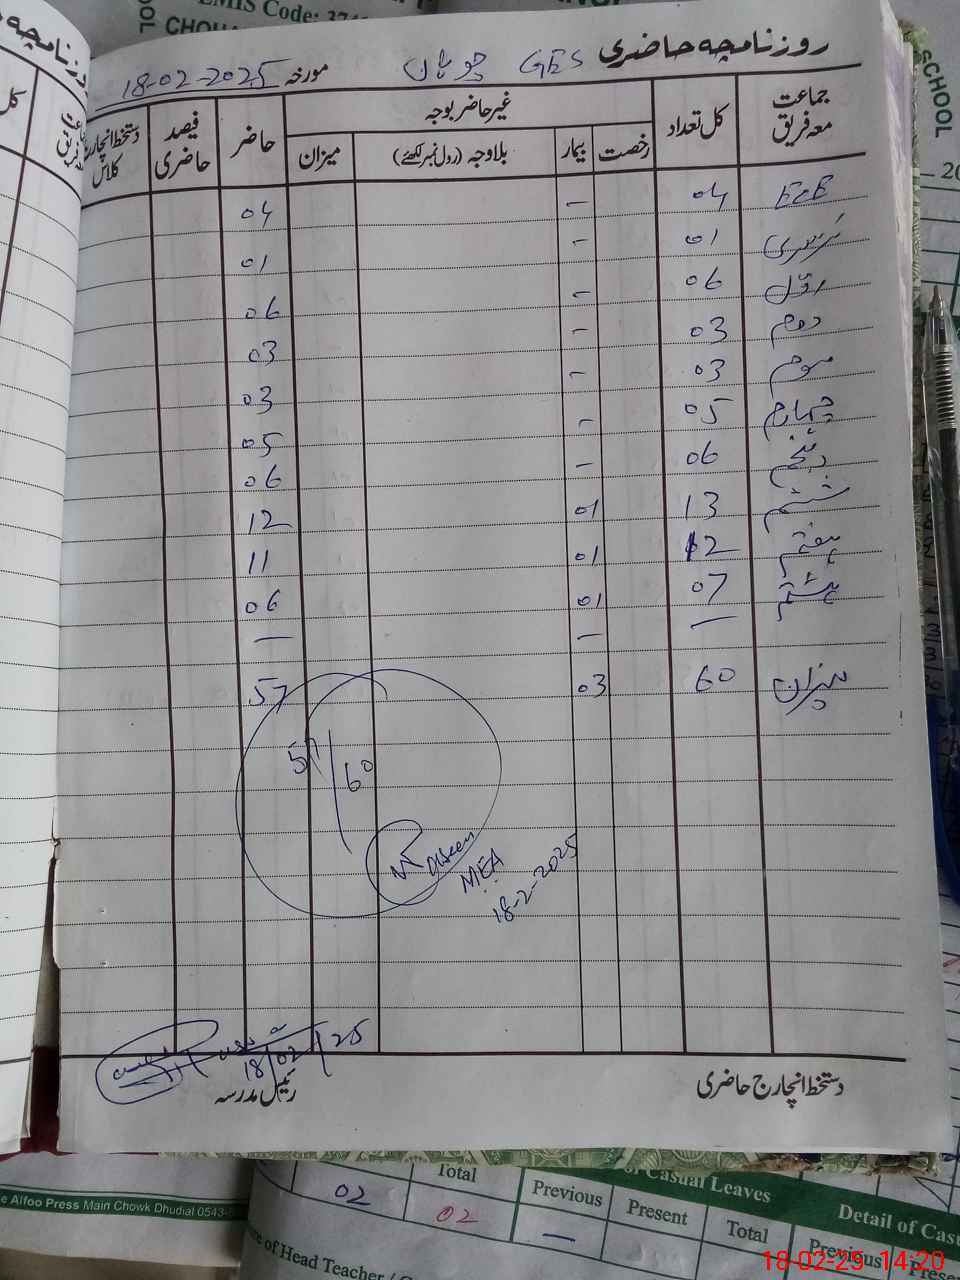 EMIS Code: 374
CHOHA
SCHOOL
روزنامچہ حاضری GES چوہان مورخہ 18-02-2025
جماعت معہ فریق کل تعداد غیر حاضر بوجہ حاضر فیصد حاضری دستخط انچارج کلاس
رخصت بیمار بلاوجہ (رول نمبر لکھئے) میزان
ECE 04 – 04
نرسری 01 – 01
اول 06 – 06
دوم 03 – 03
سوم 03 – 03
چہارم 05 – 05
پنجم 06 – 06
ششم 13 01 12
ہفتم 12 01 11
ہشتم 07 01 06
— — —
میزان 60 03 57
57/60
MEA
18-2-2025
18/02/25
دستخط انچارج حاضری رئیس مدرسہ
Alfoo Press Main Chowk Dhudial 0543-
Total Previous Present Total Previous
02 02 —
Casual Leaves
Detail of Cas
e of Head Teacher /
18-02-25 14:20